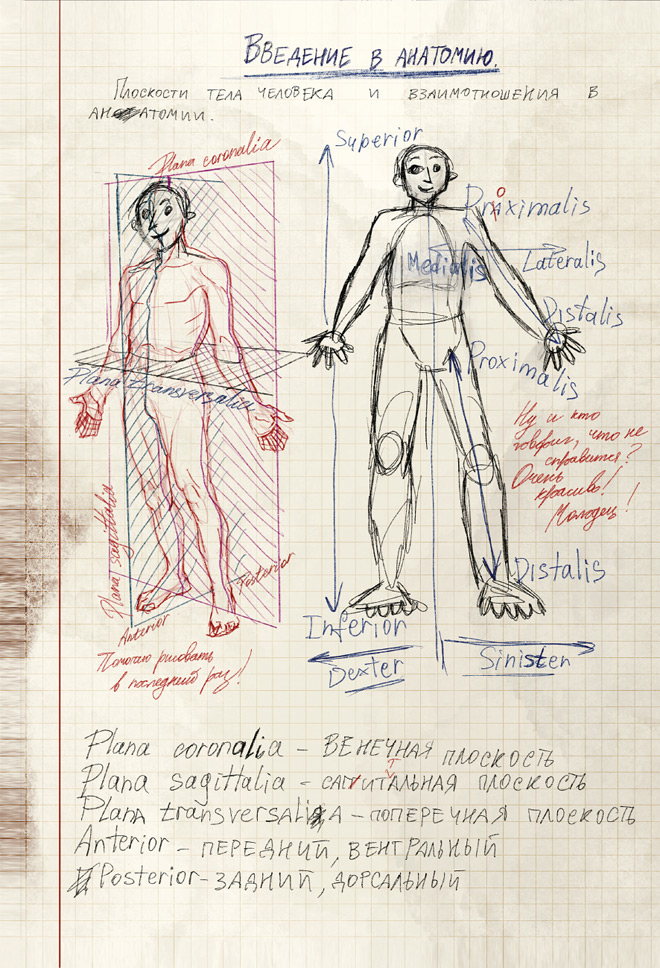 Введение в анатомию.
Плоскости тела человека и взаимотношения в
анатомии.
Plana coronalia
Superior
Proximalis
Medialis
Lateralis
Distalis
Plana transversalia
Proximalis
Ну и кто
говорил, что не
справится?
Очень
красиво!
Молодец!
Plana sagittalia
Posterior
Distalis
Anterior
Inferior
Помогаю рисовать
в последний раз!
Dexter
Sinister
Plana coronalia – венечная плоскость
Plana sagittalia – сагиттальная плоскость
Plana transversalia – поперечная плоскость
Anterior – передний, вентральный
Posterior – задний, дорсальный